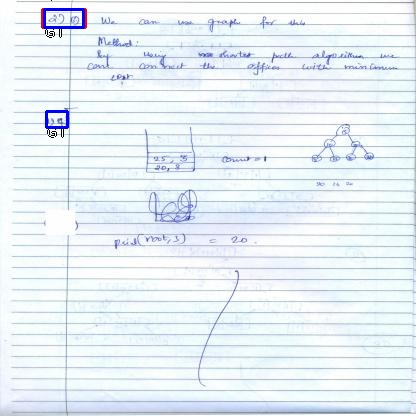 2) a) We can use graph for this
Method:
By using shortest path algorithm we
can connect the offices with minimum
cost
25, 3
20, 3
count = 1
(root, 3) = 20.